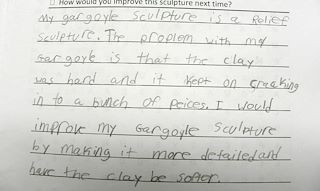 How would you improve this sculpture next time?
My gargoyle sculpture is a Relief
Sculpture. The proplem with my
Gargoyle is that the clay
was hard and it kept on Cracking
in to a bunch of peices. I would
improve my Gargoyle Sculpture
by making it more detailed and
have the clay be softer.